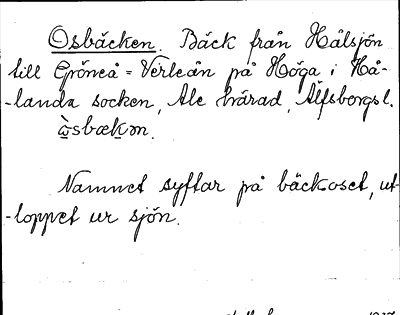 Osbäcken. Bäck från Hälsjön
till Gröneå = Verleån på Höga i Hå-
-landa socken, Ale härad, Älfsborgs l.
òsbækən.
Namnet syftar på bäckoset, ut-
-loppet ur sjön.